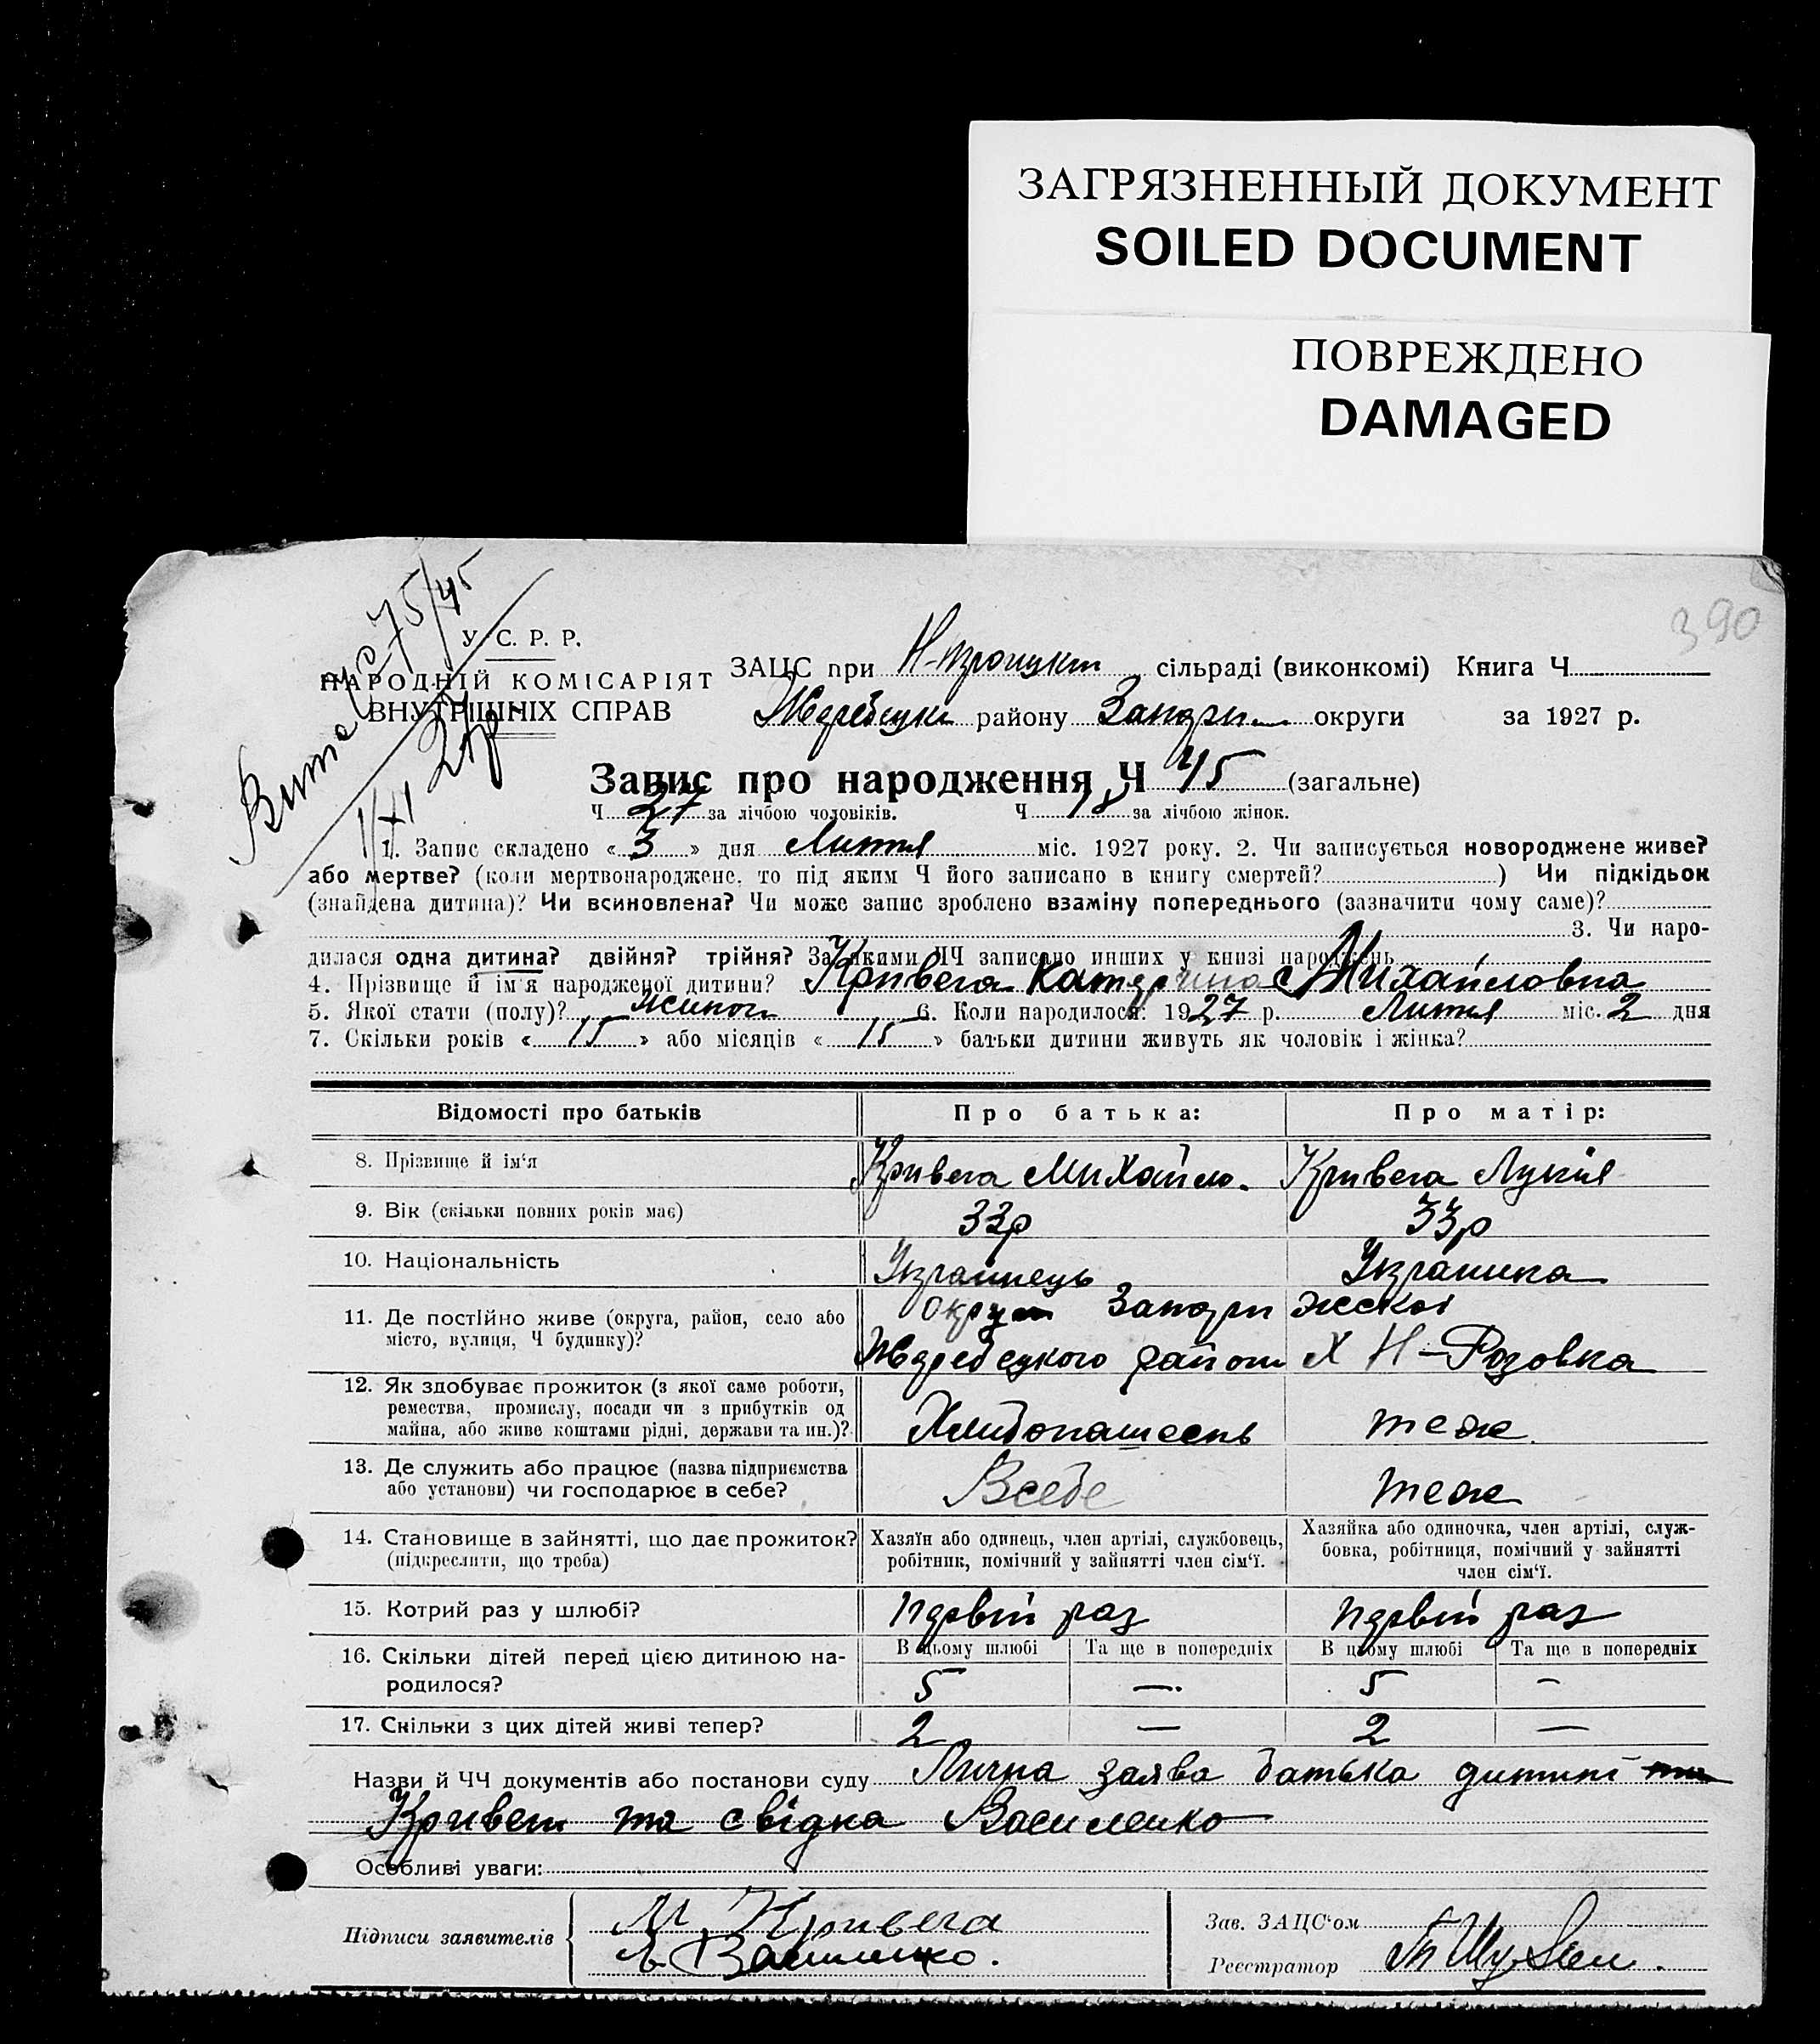 ЗАГРЯЗНЕННЫЙ ДОКУМЕНТ
SOILED DOCUMENT
ПОВРЕЖДЕНО
DAMAGED
390
75/45
У. С. Р. Р.
НАРОДНІЙ КОМІСАРІЯТ
ВНУТРІШНІХ СПРАВ
ЗАЦС при сільраді (виконкомі) Книга Ч
району округи за 1927 р.
Запис про народження Ч 45 (загальне)
Ч 27 за лічбою чоловіків. Ч 18 за лічбою жінок.
1. Запис складено « 3 » дня Лютня міс. 1927 року. 2. Чи записується новороджене живе?
або мертве? (коли мертвонароджене, то під яким Ч його записано в книгу смертей? ) Чи підкідьок
(знайдена дитина)? Чи всиновлена? Чи може запис зроблено взаміну попереднього (зазначити чому саме)?
3. Чи наро-
дилася одна дитина? двійня? трійня? За якими ЧЧ записано инших у книзі народжень
4. Прізвище й ім'я народженої дитини? Кривега Катерина Михайловна
5. Якої стати (полу)? 6. Коли народилося: 1927 р. Лютня міс. 2 дня
7. Скільки років « 15 » або місяців « 15 » батьки дитини живуть як чоловік і жінка?
Відомості про батьків Про батька: Про матір:
8. Прізвище й ім'я Кривега Михайло. Кривега Лукія
9. Вік (скільки повних років має) 33р 33р
10. Національність Українець Українка
11. Де постійно живе (округа, район, село або місто, вулиця, Ч будинку)? Округи
района х Н-Розовка
12. Як здобуває прожиток (з якої саме роботи,
ремества, промислу, посади чи з прибутків од
майна, або живе коштами рідні, держави та ин.)? Хлибопашесть теж
13. Де служить або працює (назва підприємства
або установи) чи господарює в себе? Всебе теж
14. Становище в зайнятті, що дає прожиток? (підкреслити, що треба)
Хазяїн або одинець, член артілі, службовець,
робітник, помічний у зайнятті член сім'ї.
Хазяйка або одиночка, член артілі, служ-
бовка, робітниця, помічний у зайнятті
член сім'ї.
15. Котрий раз у шлюбі? первий раз первий раз
16. Скільки дітей перед цією дитиною на-
родилося?
В цьому шлюбі Та ще в попередніх В цьому шлюбі Та ще в попередніх
5 — 5 —
17. Скільки з цих дітей живі тепер? 2 — 2 —
Назви й ЧЧ документів або постанови суду Лична заява батька дитини
та свідка Василенко
Особливі уваги:
Підписи заявителів М. Кривега
Василенко.
Зав. ЗАЦС'ом
Реєстратор